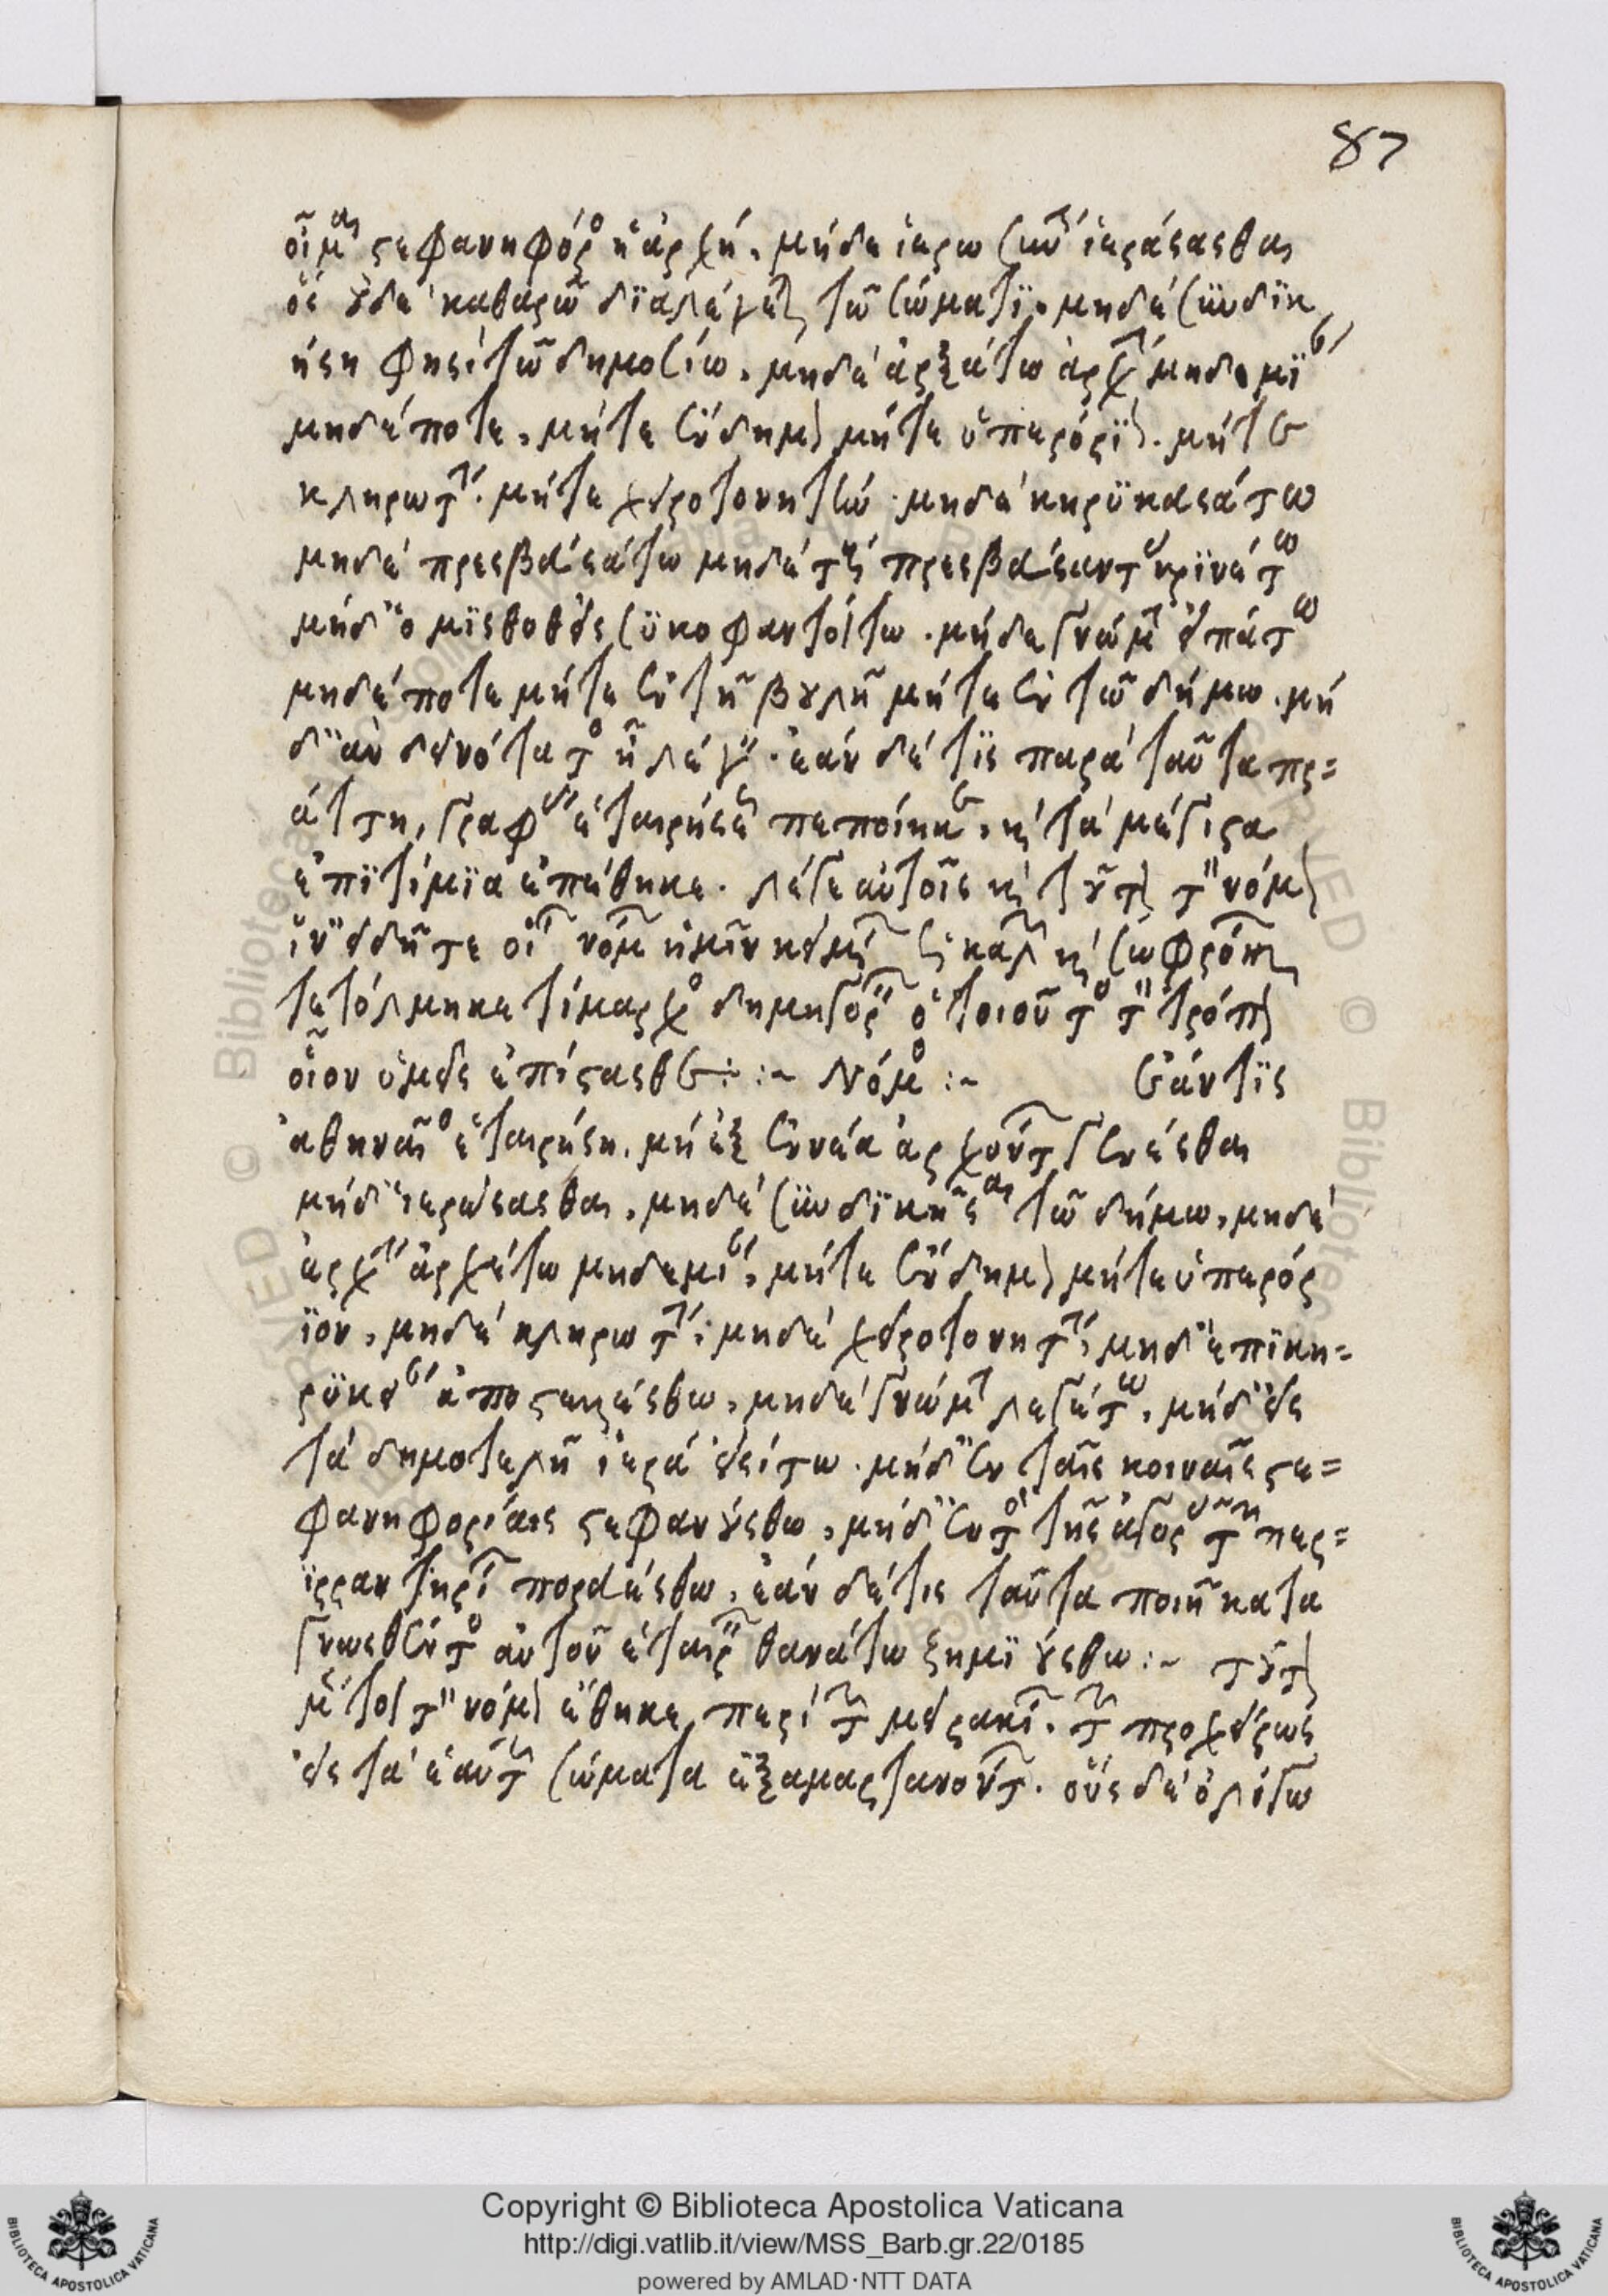 οἶμαι στεφανηφόρος ἡ ἀρχή. μήδε ἱερωσύνην ἱεράσασθαι
ὃς οὐδὲ καθαρῶ διαλέγεται τῶ σώματϊ. μηδὲ συνδϊκ
ήση φησὶ τῶ δημοσίω. μηδὲ ἀρξάτω ἀρχὴν μηδεμίαν
μηδέποτε. μήτε ἔνδημον μήτε ὑπερόριον. μήτε
κληρωτήν. μήτε χειροτονητήν. μηδὲ κηρϋκευσάτω
μηδὲ πρεσβευσάτω μηδὲ τοὺς πρεσβεύσαντας κρϊνέτω
μήδὲ μϊσθοθεὶς συκοφαντείτω. μήδε γνώμην εἰπάτω
μηδέποτε μήτε ἐν τῆ βουλῆ μήτε ἐν τῶ δήμω. μη
δ' ἂν δεινότατος ἦ λέγειν. ἐάν δέ τϊς παρὰ ταῦτα πρ=
άττη, γραφὰς ἑταιρήσεως πεποίηκεν. καὶ τὰ μέγιστα
ἐπϊτίμϊα ἐπέθηκε. λέγε αὐτοῖς καὶ τοῦτον τὸν νόμον
ἵν' εἰδῆτε οἵων νόμων ἡμῖν κειμένων ὡς καλῶν καὶ σωφρόνων
τετόλμηκε τίμαρχος δημηγορεῖν ὁ τοιοῦτος τὸν τρόπον
οἷον ὑμεῖς ἐπίστασθε :~ Νόμος :~ ἐάν τϊς
ἀθηναῖος ἑταιρήση. μὴ ἐξ ἐννέα ἀρχόντων γενέσθαι
μήδ' ἱερώσασθαι, μηδὲ συνδϊκῆσαι τῶ δήμω, μηδὲ
ἀρχὴν ἀρχέτω μηδεμίαν, μήτε ἔνδημον μήτε ὑπερόρ
ϊον, μηδὲ κληρωτήν, μηδὲ χειροτονητήν, μηδ' ἐπϊκη=
ρϋκείαν ἀποστελλέσθω, μηδὲ γνώμην λεγέτω, μήδ' εἰς
τὰ δημοτελῆ ἱερὰ εἰσίτω. μήδ' ἐν ταῖς κοιναῖς στε=
φανηφορίαις στεφανούσθω, μήδ' ἐντὸς τῆς ἀγορᾶς τῶν περ=
ϊρραντηρίων πορευέσθω, ἐάν δέ τις ταῦτα ποιῆ κατα
γνωσθέντος αὐτοῦ ἑταιρεῖν θανάτω ζημϊούσθω :~ τοῦτον
μέντοι τὸν νόμον ἔθηκε περὶ τῶν μειρακίων. τῶν προχείρως
εἰς τὰ ἑαυτῶν σώματα ἐξαμαρτανόντων. οὓς δὲ ὀλίγω